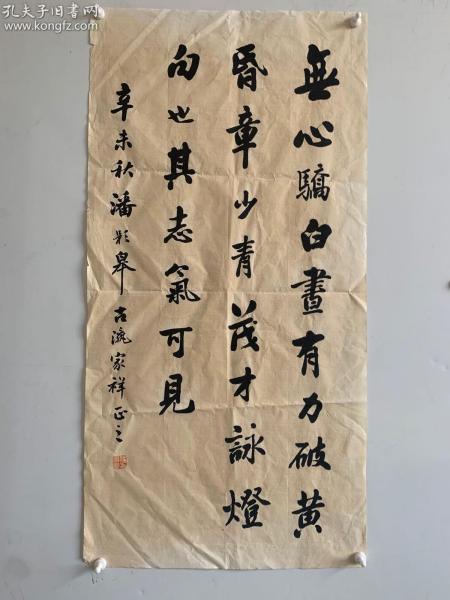 孔夫子旧书网
www.kongfz.com
無心驕白晝有力破黄
昏章少青茂才詠燈
句也其志氣可見
辛未秋潘影皋古滬家祥正之